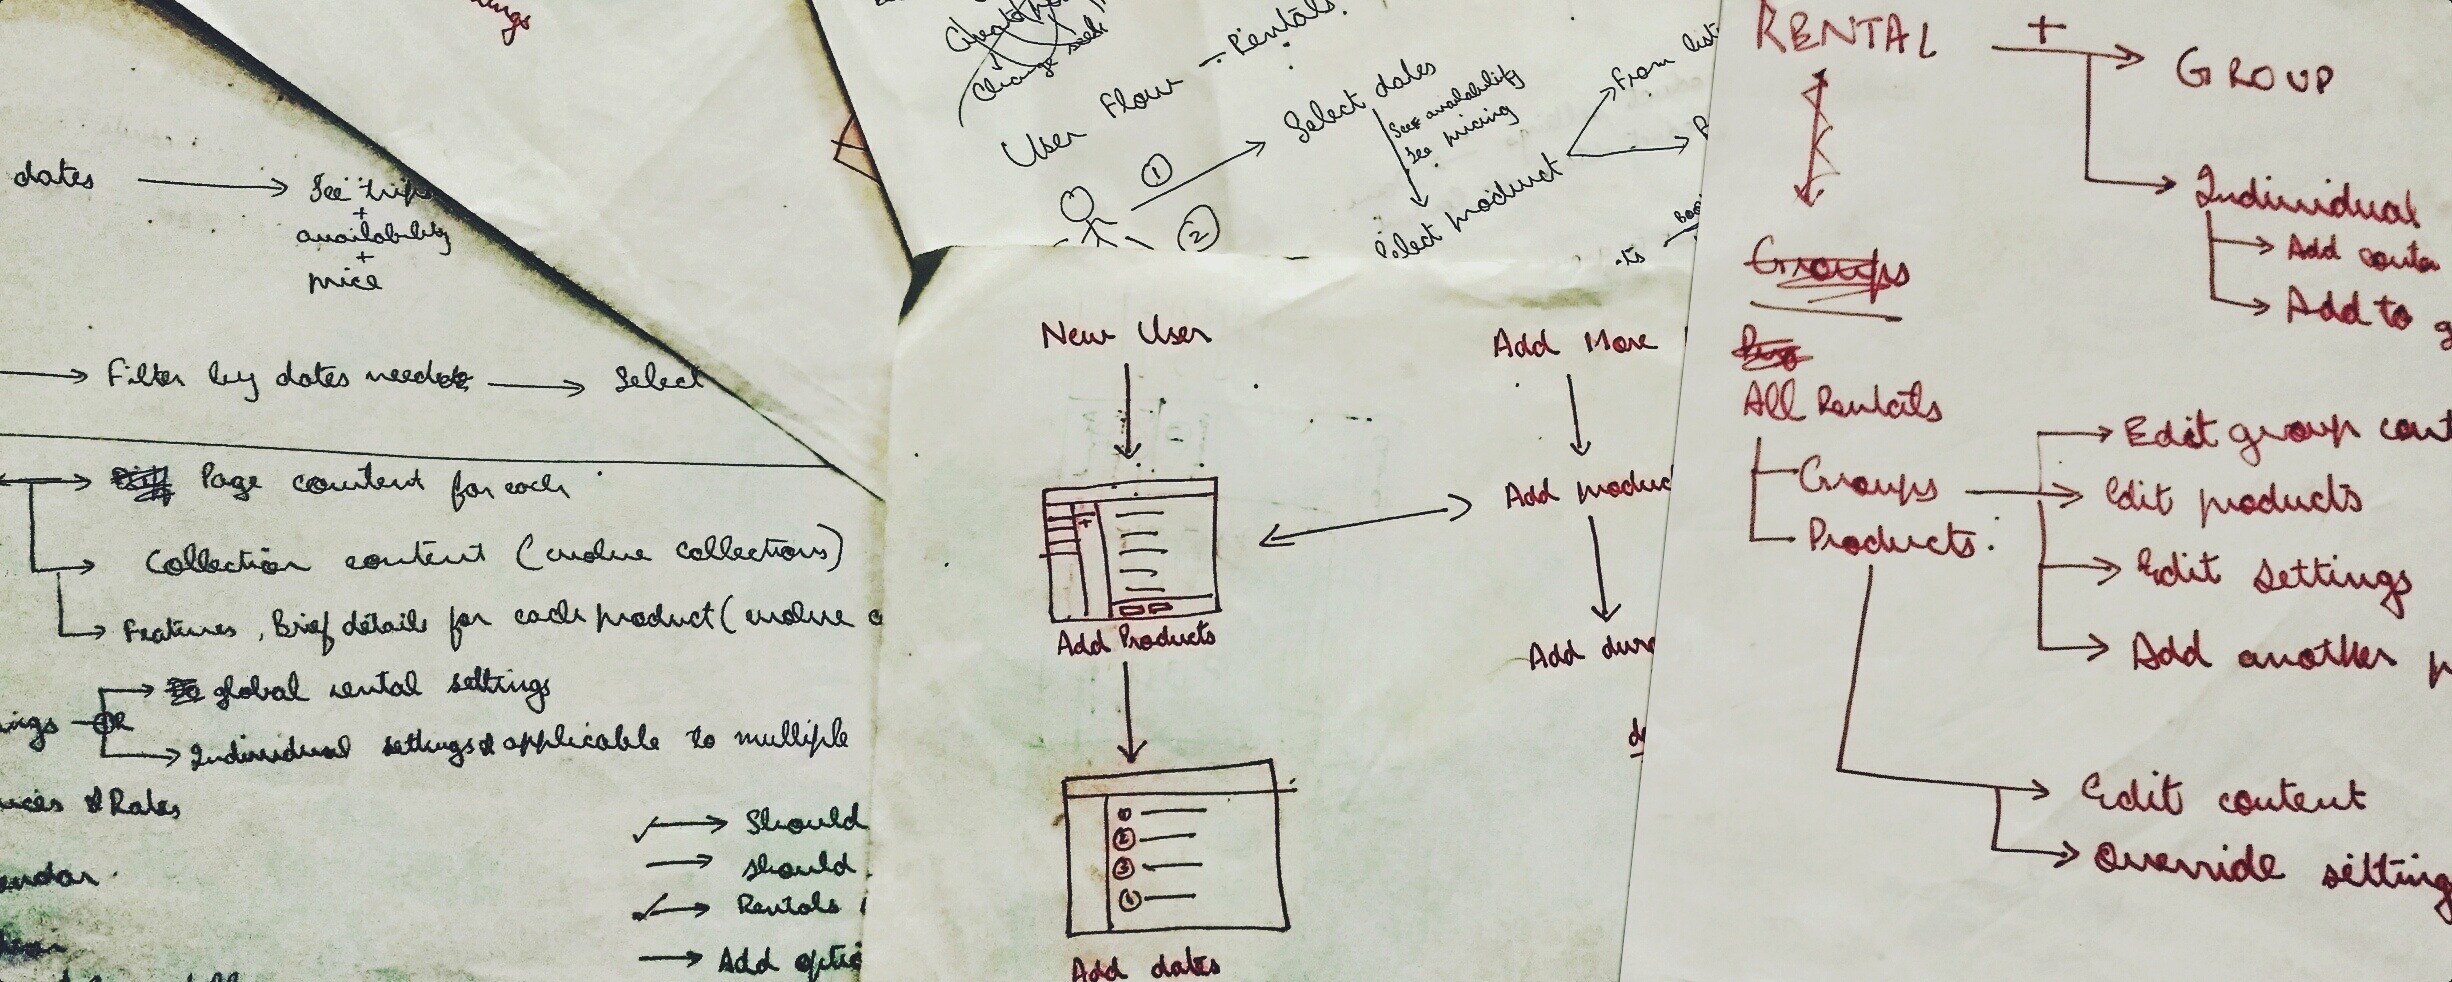 dates
See trips
+
availability
+
price
Filter by dates needed
Select
Page content for each
Collection content (evolve collections)
Features, Brief details for each product (evolve
OR
global rental settings
Individual settings applicable to multiple
& Rates
Should
should
Rentals
Add optio
Change seek
User Flow - Rentals.
1
2
Select dates
See availability
See pricing
Select product
From list
New User
Add Products
Add dates
2
3
Add More
Add produc
Add dura
RENTAL
+
GROUP
Individual
Add conte
Add to g
Groups
All Rentals
Groups
Products
Edit group cont
Edit products
Edit settings
Add another p
Edit content
Override setting